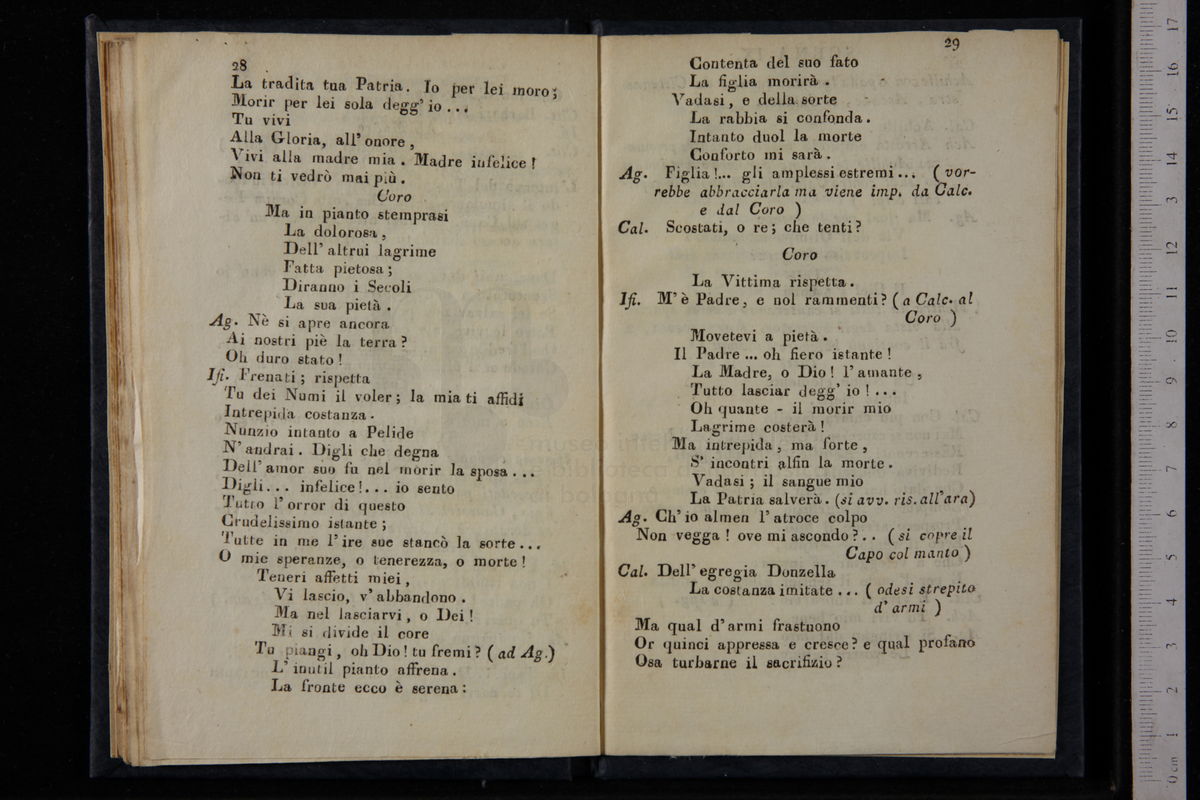 28
La tradita tua Patria. Io per lei moro;
Morir per lei sola degg' io ...
Tu vivi
Alla Gloria, all' onore,
Vivi alla madre mia. Madre infelice!
Non ti vedrò mai più.
Coro
Ma in pianto stemprasi
La dolorosa,
Dell' altrui lagrime
Fatta pietosa;
Diranno i Secoli
La sua pietà.
Ag. Nè si apre ancora
Ai nostri piè la terra?
Oh duro stato!
Ifi. Frenati; rispetta
Tu dei Numi il voler; la mia ti affidi
Intrepida costanza.
Nunzio intanto a Pelide
N' andrai. Digli che degna
Dell' amor suo fu nel morir la sposa...
Digli... infelice!... io sento
Tutto l' orror di questo
Crudelissimo istante;
Tutte in me l' ire sue stancò la sorte...
O mie speranze, o tenerezza, o morte!
Teneri affetti miei,
Vi lascio, v' abbandono.
Ma nel lasciarvi, o Dei!
Mi si divide il core
Tu piangi, oh Dio! tu fremi? (ad Ag.)
L' inutil pianto affrena.
La fronte ecco è serena:
29
Contenta del suo fato
La figlia morirà.
Vadasi, e della sorte
La rabbia si confonda.
Intanto duol la morte
Conforto mi sarà.
Ag. Figlia!... gli amplessi estremi... (vor-
rebbe abbracciarla ma viene imp. da Calc.
e dal Coro)
Cal. Scostati, o re; che tenti?
Coro
La Vittima rispetta.
Ifi. M' è Padre, e nol rammenti? (a Calc. al
Coro)
Movetevi a pietà.
Il Padre... oh fiero istante!
La Madre, o Dio! l' amante,
Tutto lasciar degg' io!...
Oh quante - il morir mio
Lagrime costerà!
Ma intrepida, ma forte,
S' incontri alfin la morte.
Vadasi; il sangue mio
La Patria salverà. (si avv. ris. all' ara)
Ag. Ch' io almen l' atroce colpo
Non vegga! ove mi ascondo?.. (si copre il
Capo col manto)
Cal. Dell' egregia Donzella
La costanza imitate... (odesi strepito
d' armi)
Ma qual d' armi frastuono
Or quinci appressa e cresce? e qual profano
Osa turbarne il sacrifizio?
museo
biblioteca
di bologna
0 cm 1 2 3 4 5 6 7 8 9 10 11 12 13 14 15 16 17